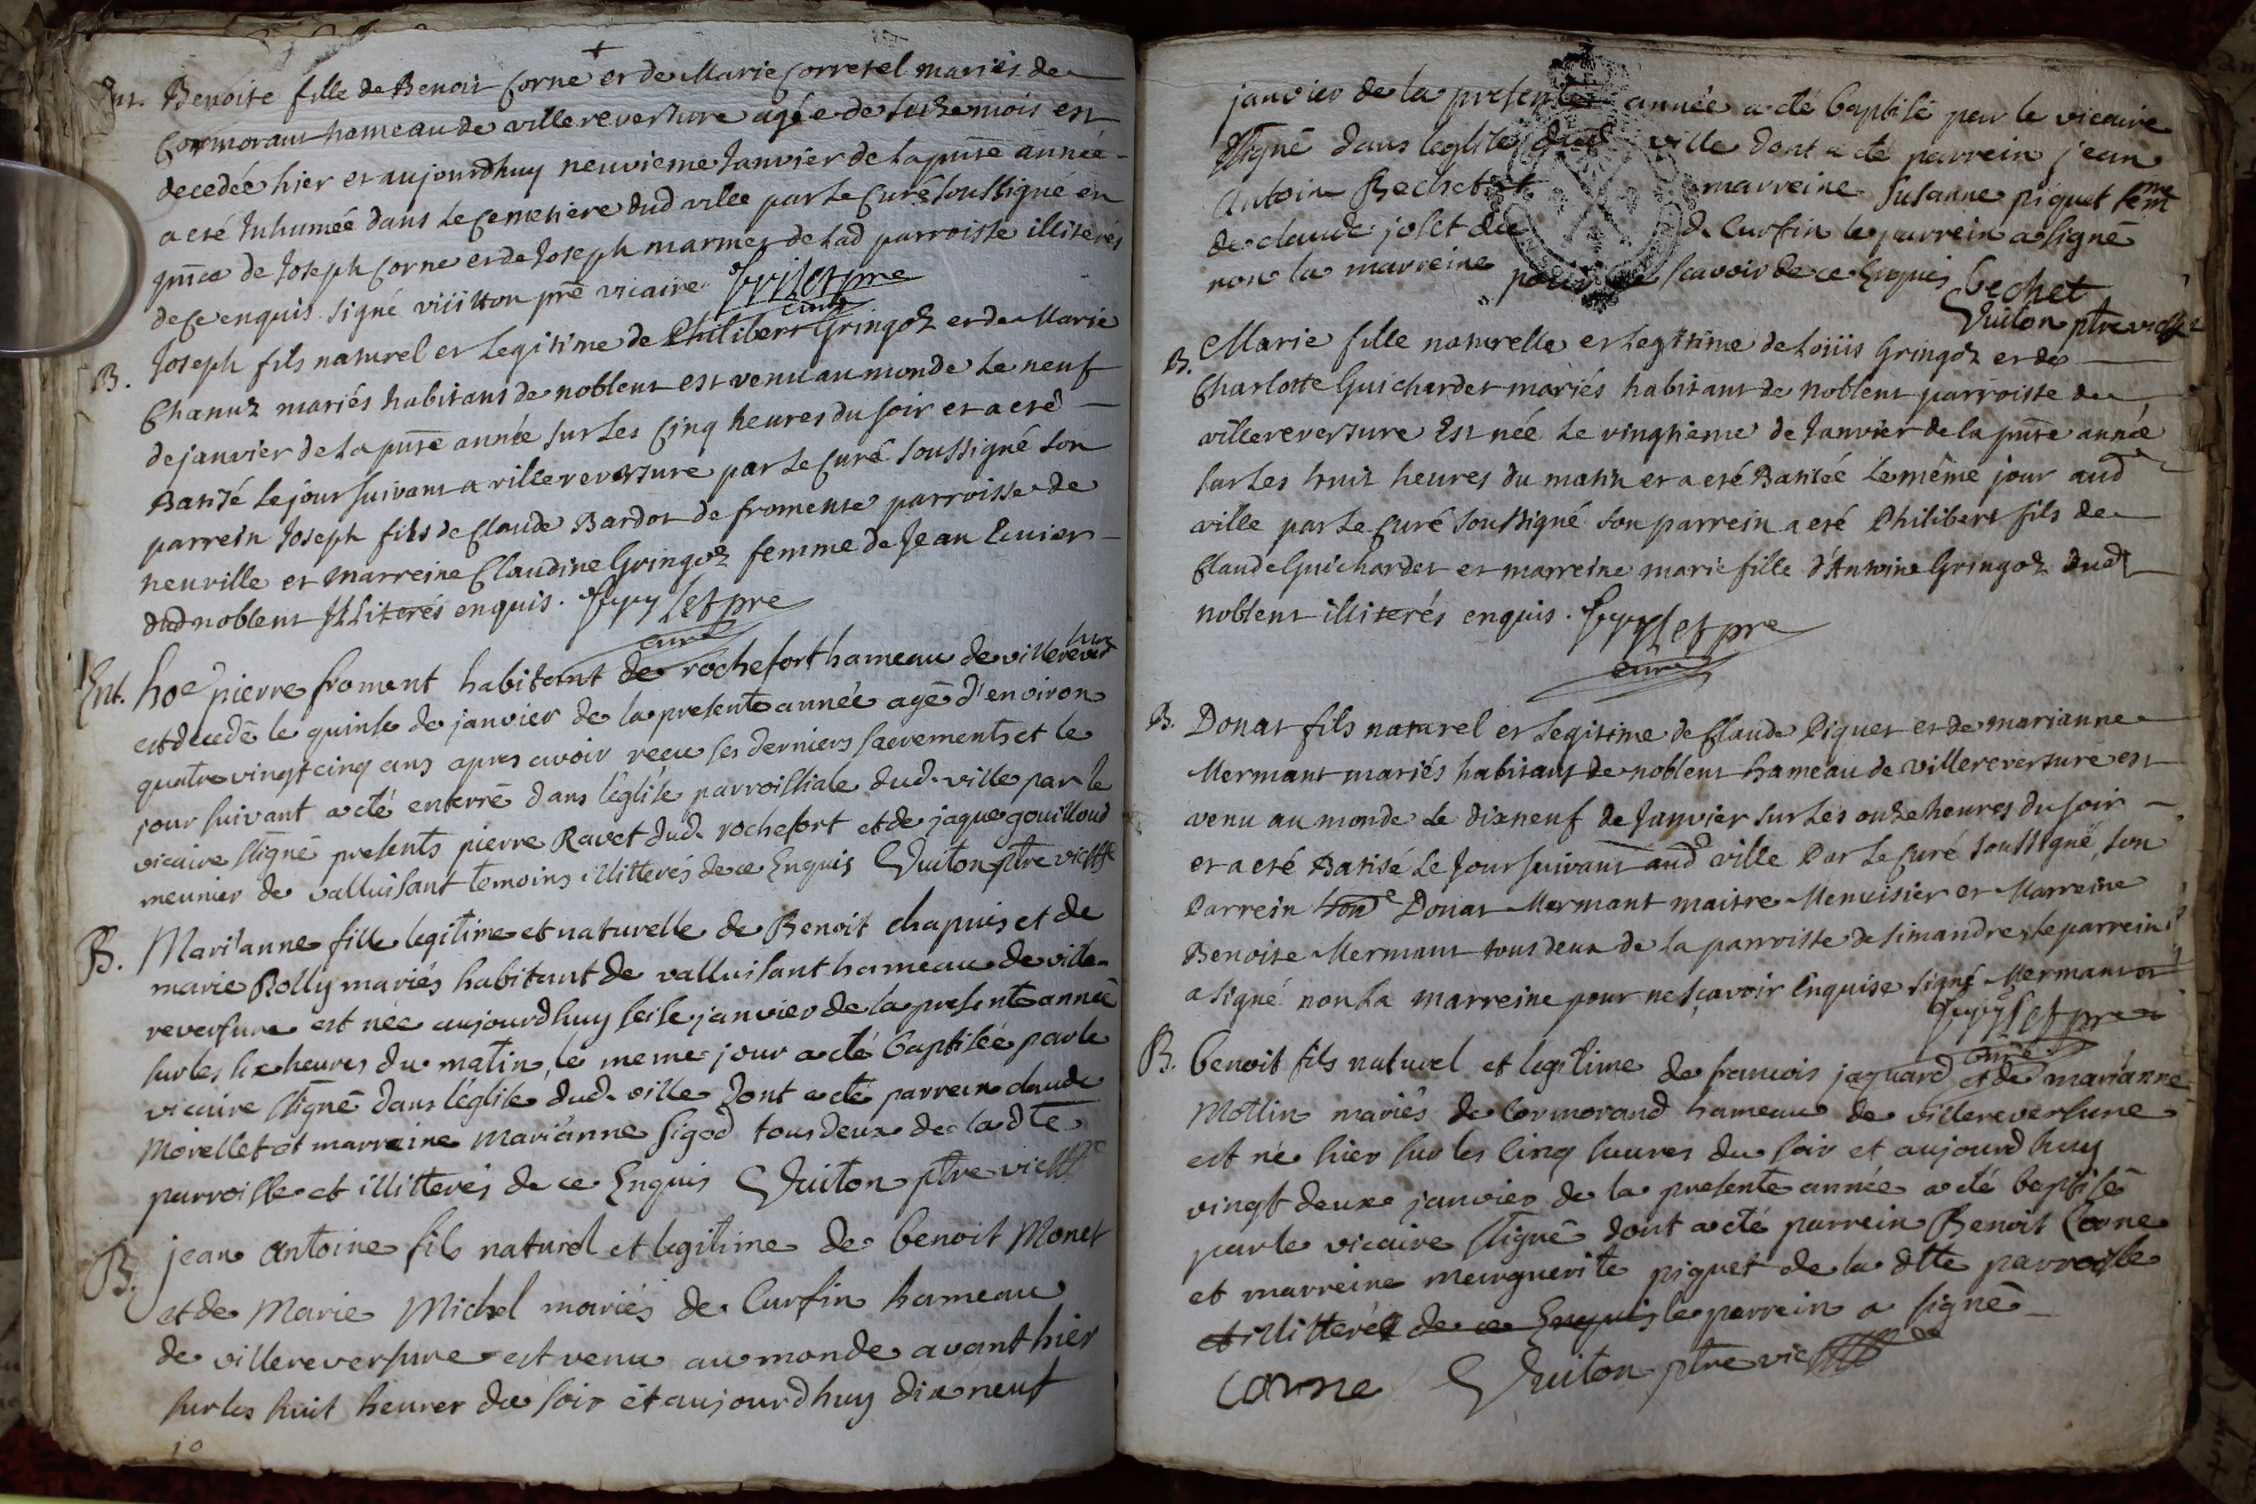 Ent. Benoite fille de Benoit Corne et de Marie Corretel mariés de
Cormorant hameau de villereversure agée de seize mois est
decedée hier et aujourdhuy neuvieme Janvier de la pnte année
a eté Inhumée dans le Cemetiere dud ville par le Curé soussigné en
pnce de Joseph Corne et de Joseph marmet de lad parroisse illiteres
de ce enquis signé viiitton pre vicaire
curé
B. Joseph fils naturel et legitime de Philibert Gringoz et de Marie
Chanuz mariés habitans de noblens est venu au monde le neuf
de janvier de la pnte année sur les Cinq heures du soir et a eté
Batisé le jour suivant a villereversure par le Curé soussigné son
parrein Joseph fils de Claude Bardot de fromente parroisse de
neuville et marreine Claudine Gringoz femme de Jean Cuvier
dud noblens Illiterés enquis.
curé
Ent. hoe pierre froment habitant de rochefort hameau de villerevers
ure
est decedé le quinse de janvier de la presente année agé d'environ
quatre vingt cinq ans apres avoir recu ses derniers sacrements et le
jour suivant a eté enterré dans l'eglise parroissiale dud. ville par le
vicaire ssigné presents pierre Ravet dud. rochefort et de jaque gouilloud
meunier de valluisant temoins illitterés de ce Enquis Vuiton ptre vic
B. Mari'anne fille legitime et naturelle de Benoit chapuis et de
marie Rolly mariés habitant de valluisant hameau de ville-
reversure est née aujourdhuy seise janvier de la presente année
sur les six heures du matin, le meme jour a eté baptisée par le
vicaire ssigné dans l'eglise dud. ville dont a eté parrein claude
Morellet et marreine Mari'anne sigod tous deux de la dte
parroisse et illitterés de ce Enquis Vuiton ptre vic
B. jean antoine fils naturel et legitime de benoit Monet
et de Marie Michel mariés de Curfin hameau
de villereversure est venu au monde avant hier
sur les huit heures du soir et aujourdhuy dix neuf
10
janvier de la presente année a eté baptisé par le vicaire
ssigné dans l'eglise dud ville dont a eté parrein jean
antoine Bechet et marreine Susanne piquet femme
de claude jolet de Curfin le parrein a signé
non la marreine pour ne scavoir de ce Enquis bechet
Vuiton ptre vic
B. Marie fille naturelle et legitime de Loüis Gringoz et de
Charlotte Guichardet mariés habitant de noblens parroisse de
villereversure Est née le vingtième de Janvier de la pnte année
sur les huit heures du matin et a eté Batisée le même jour aud
ville par le Curé soussigné son parrein a eté Philibert fils de
Claude Guichardet et marreine marie fille d'Antoine Gringoz dud
noblens illiterés enquis.
curé
B. Donat fils naturel et legitime de Claude Piquet et de marianne
Mermant mariés habitans de noblens hameau de villereversure est
venu au monde le dixneuf de Janvier sur les onze heures du soir
et a eté Batisé le Jour suivant aud ville Par le Curé soussigné, son
Parrein Donat Mermant maitre Menuisier et Marreine
Benoite Mermant tous deux de la parroisse de simandre, le parrein
a signé non la marreine pour ne sçavoir Enquise signé Mermant
curé
B. benoit fils naturel et legitime de francois jaquard et de mari'anne
Mottin mariés de Cormorand hameau de villereversure
est né hier sur les Cinq heures du soir et aujourdhuy
vingt deux janvier de la presente année a eté baptisé
par le vicaire ssigné dont a eté parrein Benoit Corne
et marreine marguerite piquet de la dtte parroisse
et illitterés de ce Enquis le parrein a signé
corne Vuiton ptre vic